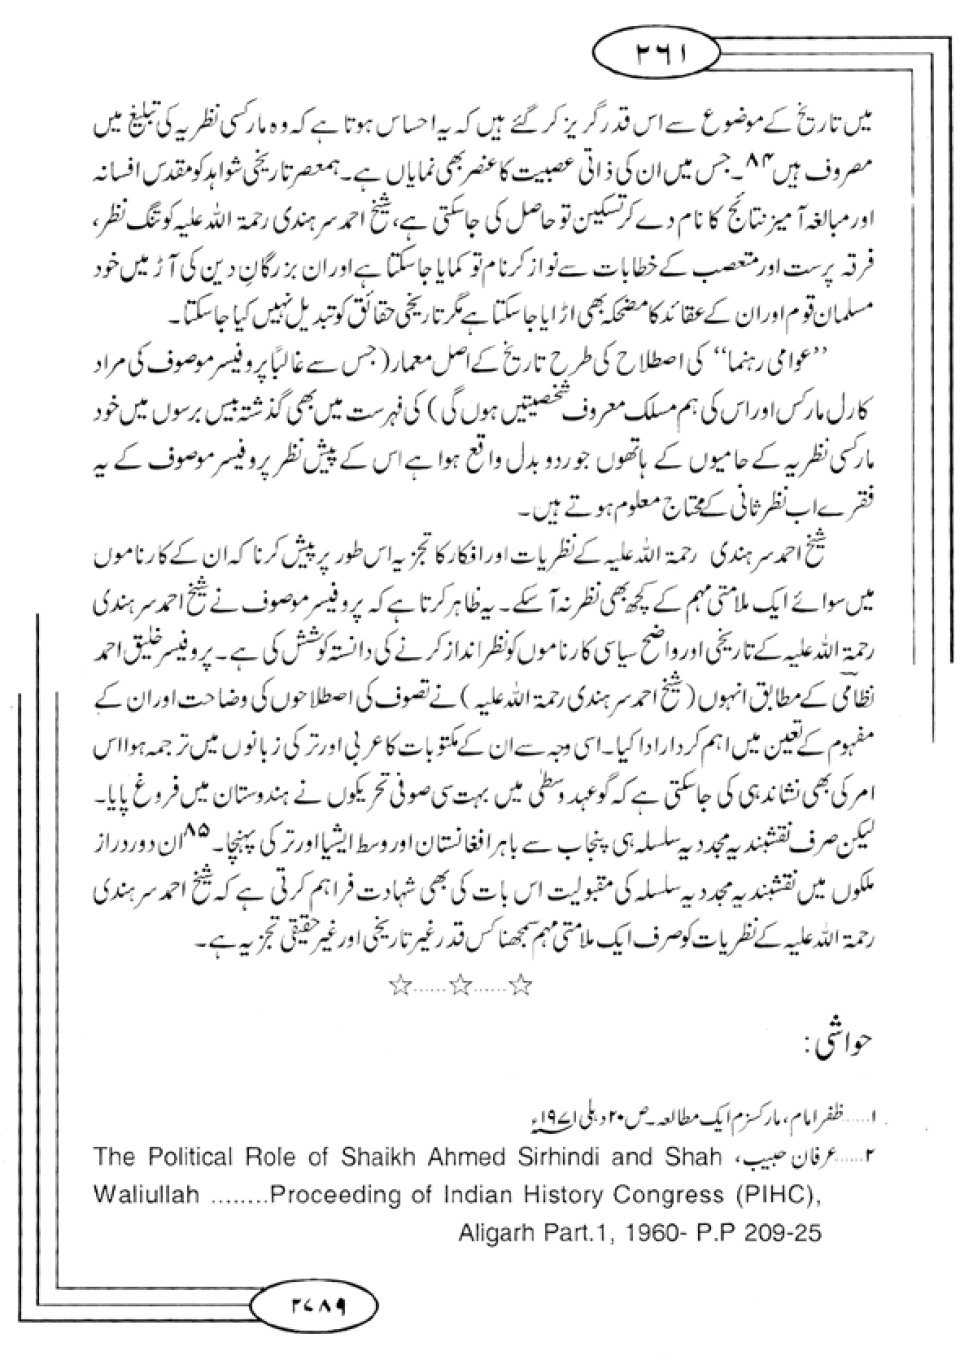 ۲۶۱
میں تاریخ کے موضوع سے اس قدر گریز کر گئے ہیں کہ یہ احساس ہوتا ہے کہ وہ مارکسی نظریہ کی تبلیغ میں
مصروف ہیں۸۴۔ جس میں ان کی ذاتی عصبیت کا عنصر بھی نمایاں ہے۔ ہمعصر تاریخی شواہد کو مقدس افسانہ
اور مبالغہ آمیز نتائج کا نام دے کر تسکین تو حاصل کی جاسکتی ہے، شیخ احمد سرہندی رحمۃ اللہ علیہ کو تنگ نظر،
فرقہ پرست اور متعصب کے خطابات سے نواز کر نام تو کمایا جاسکتا ہے اور ان بزرگانِ دین کی آڑ میں خود
مسلمان قوم اور ان کے عقائد کا مضحکہ بھی اڑایا جاسکتا ہے مگر تاریخی حقائق کو تبدیل نہیں کیا جاسکتا۔
”عوامی رہنما“ کی اصطلاح کی طرح تاریخ کے اصل معمار (جس سے غالباً پروفیسر موصوف کی مراد
کارل مارکس اور اس کی ہم مسلک معروف شخصیتیں ہوں گی) کی فہرست میں بھی گذشتہ بیس برسوں میں خود
مارکسی نظریہ کے حامیوں کے ہاتھوں جو ردو بدل واقع ہوا ہے اس کے پیش نظر پروفیسر موصوف کے یہ
فقرے اب نظر ثانی کے محتاج معلوم ہوتے ہیں۔
شیخ احمد سرہندی رحمۃ اللہ علیہ کے نظریات اور افکار کا تجزیہ اس طور پر پیش کرنا کہ ان کے کارناموں
میں سوائے ایک ملامتی مہم کے کچھ بھی نظر نہ آسکے۔ یہ ظاہر کرتا ہے کہ پروفیسر موصوف نے شیخ احمد سرہندی
رحمۃ اللہ علیہ کے تاریخی اور واضح سیاسی کارناموں کو نظر انداز کرنے کی دانستہ کوشش کی ہے۔ پروفیسر خلیق احمد
نظامی کے مطابق انہوں (شیخ احمد سرہندی رحمۃ اللہ علیہ) نے تصوف کی اصطلاحوں کی وضاحت اور ان کے
مفہوم کے تعین میں اہم کردار ادا کیا۔ اسی وجہ سے ان کے مکتوبات کا عربی اور ترکی زبانوں میں ترجمہ ہوا اس
امر کی بھی نشاندہی کی جاسکتی ہے کہ گو عہد وسطیٰ میں بہت سی صوفی تحریکوں نے ہندوستان میں فروغ پایا۔
لیکن صرف نقشبندیہ مجددیہ سلسلہ ہی پنجاب سے باہر افغانستان اور وسط ایشیا اور ترکی پہنچا۔۸۵ ان دور دراز
ملکوں میں نقشبندیہ مجددیہ سلسلہ کی مقبولیت اس بات کی بھی شہادت فراہم کرتی ہے کہ شیخ احمد سرہندی
رحمۃ اللہ علیہ کے نظریات کو صرف ایک ملامتی مہم سمجھنا کس قدر غیر تاریخی اور غیر حقیقی تجزیہ ہے۔
☆......☆......☆
حواشی:
۱.....ظفر امام، مارکسزم ایک مطالعہ۔ ص ۲۰ دہلی ۱۹۷۱ء
۲.....عرفان حبیب، The Political Role of Shaikh Ahmed Sirhindi and Shah
Waliullah ........Proceeding of Indian History Congress (PIHC),
Aligarh Part.1, 1960- P.P 209-25
۲۷۸۹